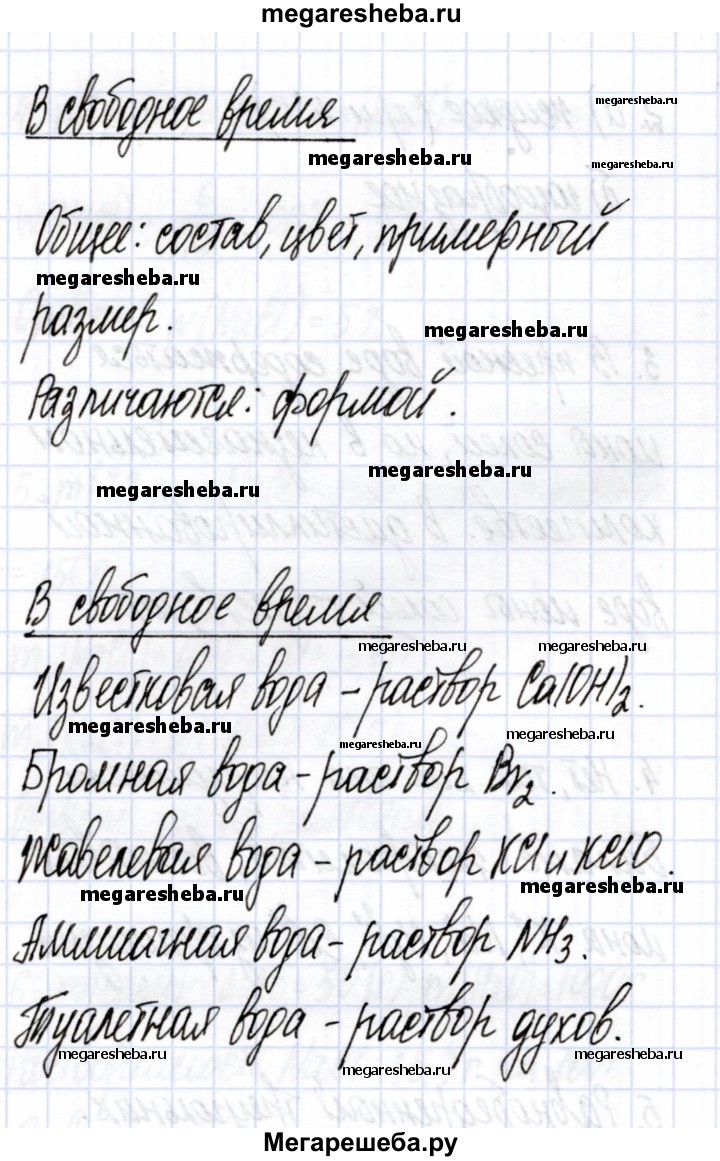 megaresheba.ru
В свободное время
megaresheba.ru
megaresheba.ru
Общее: состав, цвет, примерный
megaresheba.ru
размер.
megaresheba.ru
Различаются: формой.
megaresheba.ru
megaresheba.ru
В свободное время
megaresheba.ru
megaresheba.ru
Известковая вода – раствор Ca(OH)2.
megaresheba.ru
megaresheba.ru
megaresheba.ru
Бромная вода – раствор Br2.
Жавелевая вода – раствор KCl и KClO.
megaresheba.ru
megaresheba.ru
Аммиачная вода – раствор NH3.
Туалетная вода – раствор духов.
megaresheba.ru
megaresheba.ru
megaresheba.ru
Мегарешеба.ру